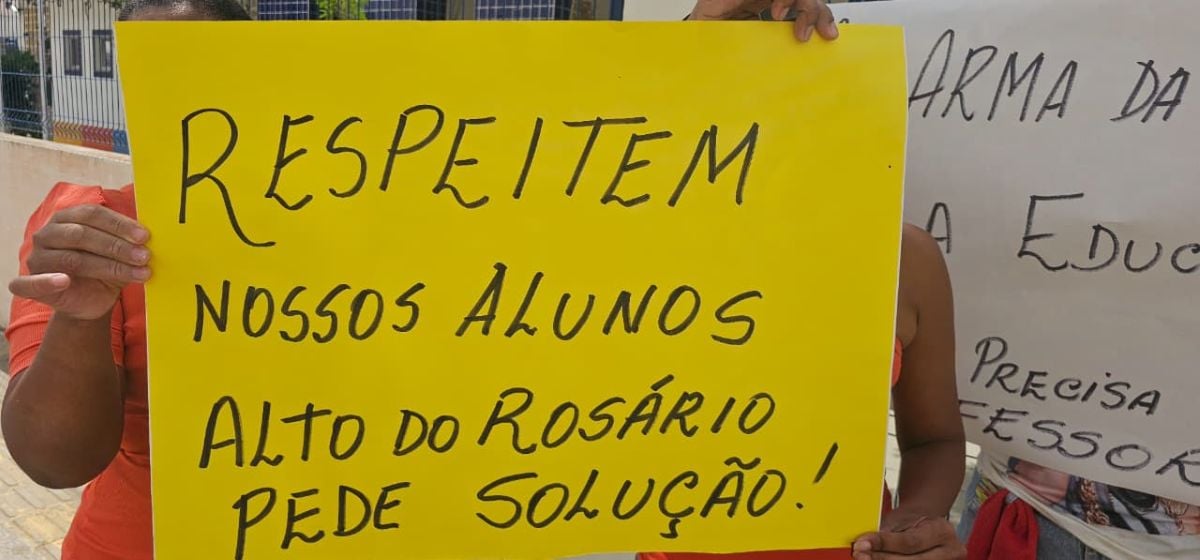 RESPEITEM
NOSSOS ALUNOS
ALTO DO ROSÁRIO
PEDE SOLUÇÃO!
ARMA DA
A EDUC
PRECISA
FESSOR